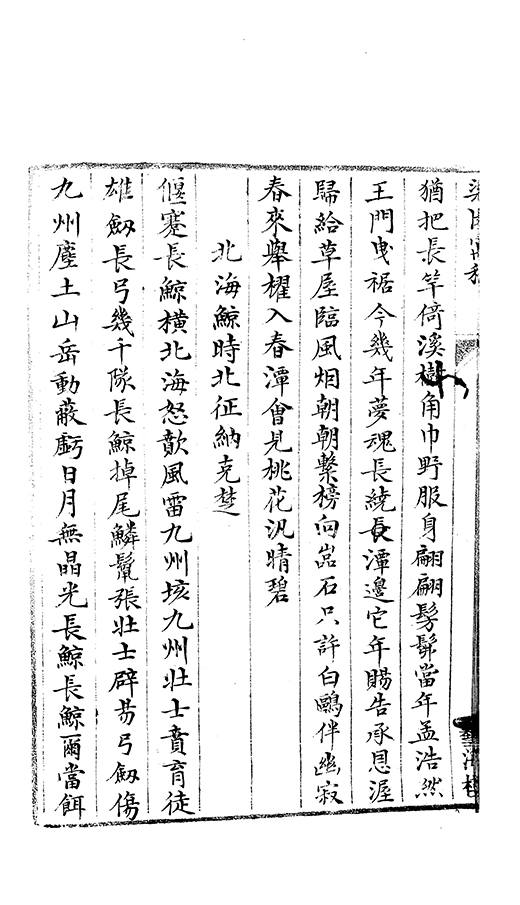 猶把長竿倚溪樹角巾野服身翩翩髣髴當年孟浩然
王門曳裾今幾年夢魂長繞長潭邊它年賜告承恩渥
歸給草屋臨風烟朝朝繫榜向嵓石只許白鷗伴幽寂
春來舉櫂入春潭會見桃花汎晴碧
北海鯨時北征納克楚
偃蹇長鯨橫北海怒歕風雷九州垓九州壯士賁育徒
雄劔長弓幾千隊長鯨掉尾鱗鬣張壯士辟易弓劔傷
九州塵土山岳動蔽虧日月無晶光長鯨長鯨爾當餌